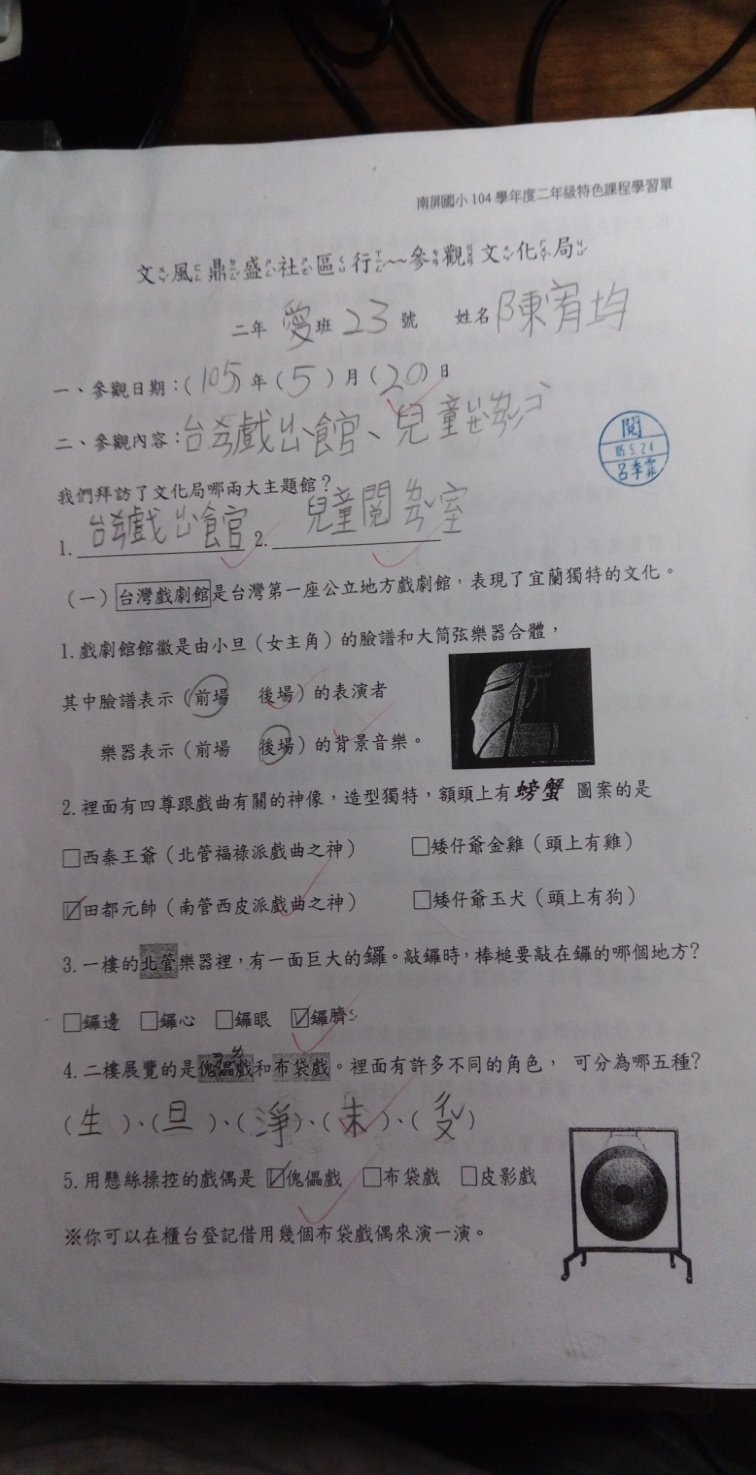 南屏國小 104 學年度二年級特色課程學習單
文風鼎盛社區行~~參觀文化局
二年 愛班 23 號 姓名 陳宥均
一、參觀日期：(105)年(5)月(20)日
二、參觀內容：台ㄨㄢ戲ㄐㄩ館、兒童
閱
105.5.24
我們拜訪了文化局哪兩大主題館？
1. 台ㄨㄢ戲ㄐㄩ館 2. 兒童閱ㄌㄢ室
（一）台灣戲劇館是台灣第一座公立地方戲劇館，表現了宜蘭獨特的文化。
1.戲劇館館徽是由小旦（女主角）的臉譜和大筒弦樂器合體，
其中臉譜表示（前場 後場）的表演者
樂器表示（前場 後場）的背景音樂。
2.裡面有四尊跟戲曲有關的神像，造型獨特，額頭上有螃蟹 圖案的是
□西秦王爺（北管福祿派戲曲之神） □矮仔爺金雞（頭上有雞）
☑田都元帥（南管西皮派戲曲之神） □矮仔爺玉犬（頭上有狗）
3.一樓的北管樂器裡，有一面巨大的鑼。敲鑼時，棒槌要敲在鑼的哪個地方？
□鑼邊 □鑼心 □鑼眼 ☑鑼臍
4.二樓展覽的是傀儡戲和布袋戲。裡面有許多不同的角色， 可分為哪五種？
(生)、(旦)、(淨)、(末)、( )
5.用懸絲操控的戲偶是 ☑傀儡戲 □布袋戲 □皮影戲
※你可以在櫃台登記借用幾個布袋戲偶來演一演。